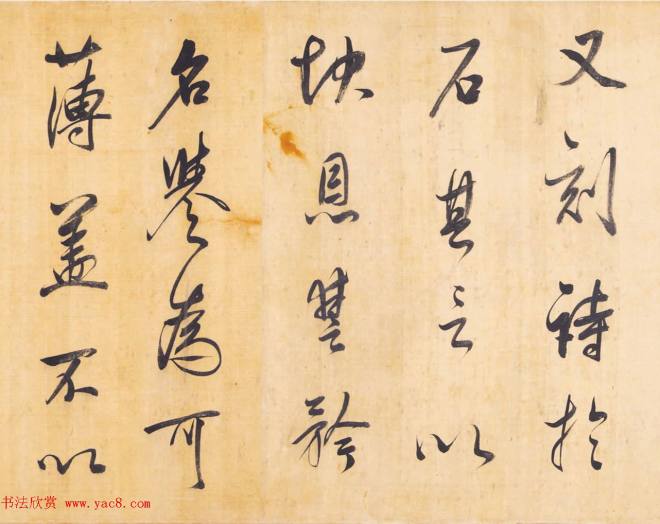 又刻詩於
石其言以
快恩讐矜
名譽為可
薄盖不以
书法欣赏 www.yac8.com